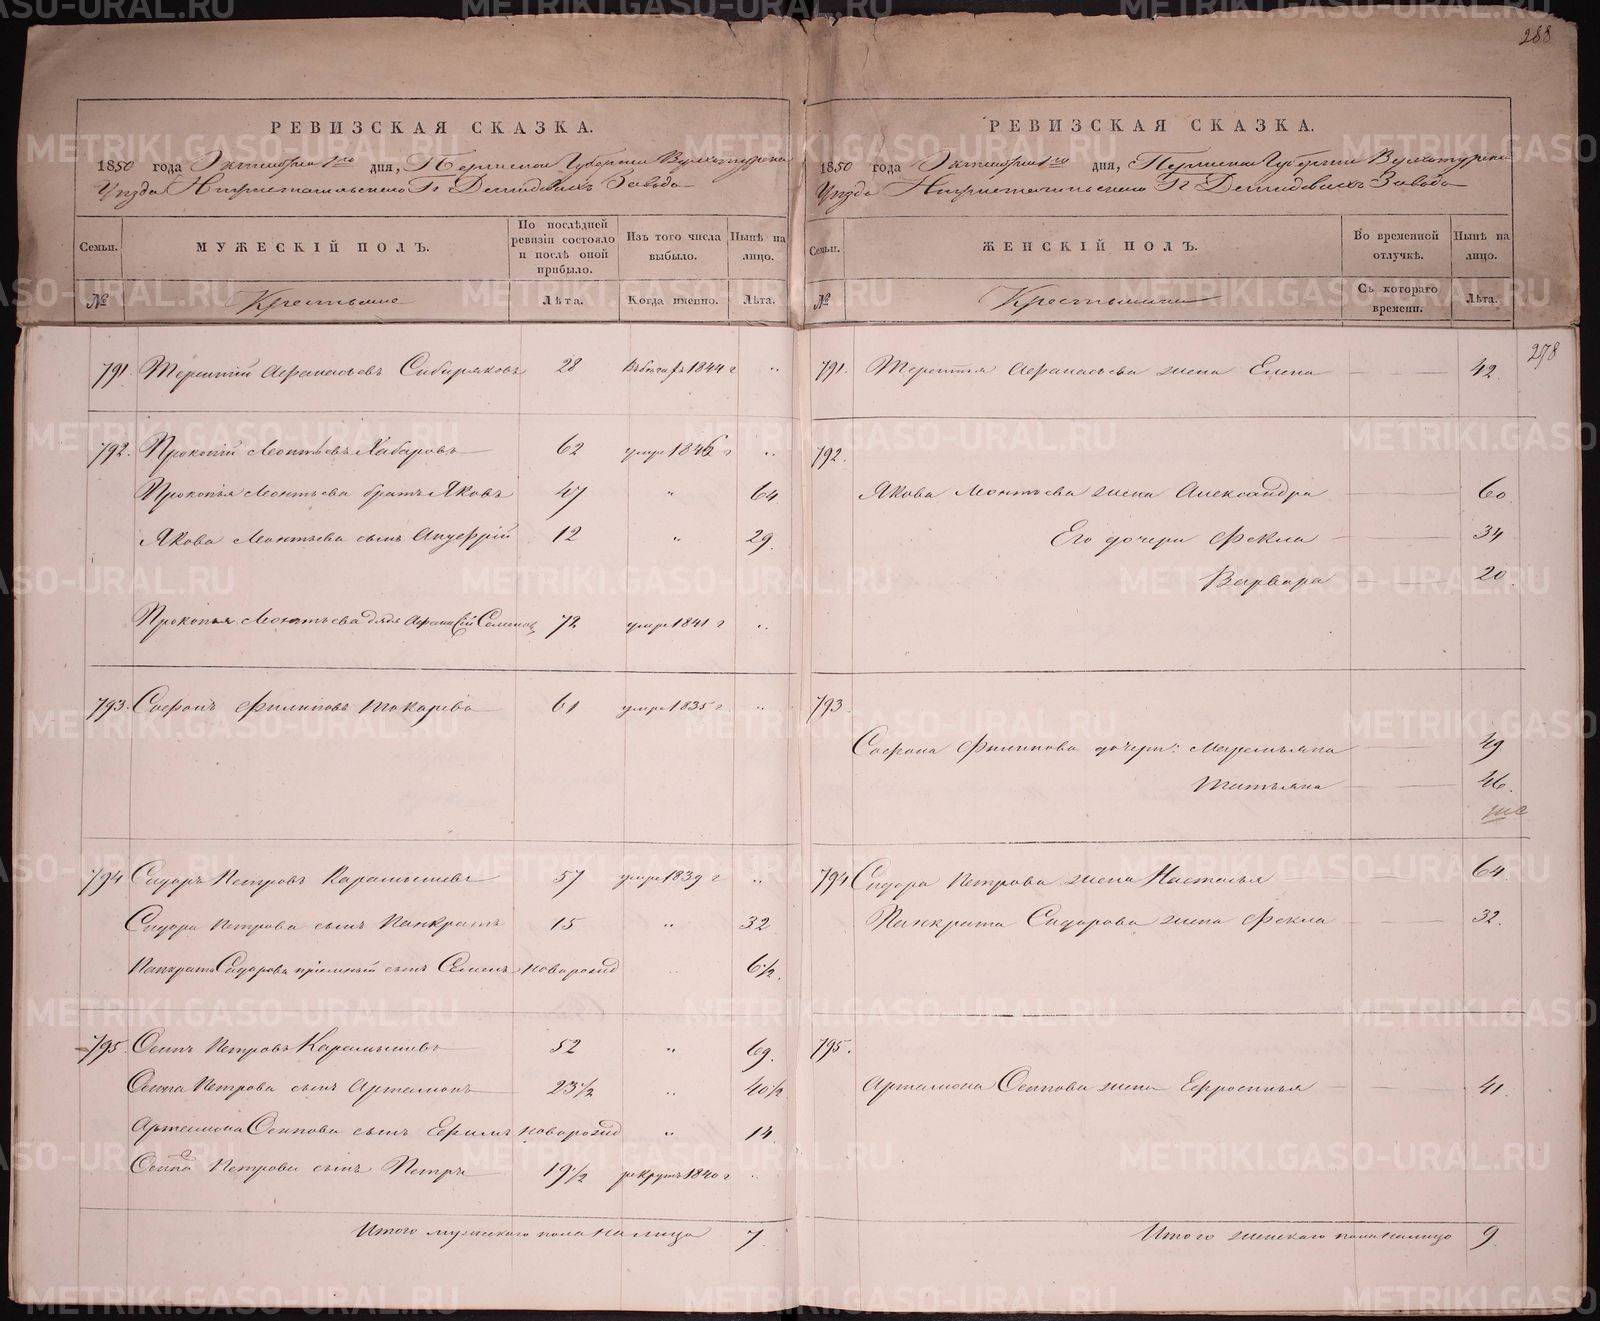 288
РЕВИЗСКАЯ СКАЗКА.
1850 года Октября 1го дня, Пермской Губернии Верхотурска
Уезда Нижнетагильского Гг Демидовыхъ Завода
Семьи. МУЖЕСКІЙ ПОЛЪ. По послѣдней ревизіи состояло и послѣ оной прибыло. Изъ того числа выбыло. Нынѣ на лицо.
№ Крестьяне Лѣта. Когда именно. Лѣта.
791. Терентій Афанасьевъ Сибиряковъ 28 1844 г „
792. Прокопій Леонтьевъ Хабаровъ 62 умре 1846 г „
Прокопья Леонтьева братъ Яковъ 47 „ 64.
Якова Леонтьева сынъ 12 „ 29.
Прокопья Леонтьева дядя Семенов 72 умре 1841 г „
793. Софонъ Филиповъ Токарева 61 умре 1835 г „
794 Сидоръ Петровъ Карамышевъ 57 умре 1839 г „
Сидора Петрова сынъ Панкратъ 15 „ 32
Панкрата Сидорова пріемный сынъ Семенъ новорожд 6 1/2
795. Осипъ Петровъ Карамышевъ 52 „ 69.
Осипа Петрова сынъ Артамонъ 23 1/2 „ 40 1/2
Артамона Осипова сынъ Ефимъ новорожд „ 14
Осипа Петрова сынъ Петръ 19 1/2 рекрутъ 1840 г „
Итого мужескаго пола налицо 7
РЕВИЗСКАЯ СКАЗКА.
1850 года Октября 1го дня, Пермской Губерніи Верхотурска
Уезда Нижнетагильского Гг Демидовыхъ Завода
Семьи. ЖЕНСКІЙ ПОЛЪ. Во временной отлучкѣ. Нынѣ на лицо.
№ Крестьянки Съ котораго времени. Лѣта.
278
791. Терентья Афанасьева жена Елена 42.
792.
Якова Леонтьева жена Александра 60.
Его дочери Фекла 34
Варвара 20.
793.
Софона Филипова дочери: Маремьяна 49
Татьяна 46.
794 Сидора Петрова жена Настасья 64.
Панкрата Сидорова жена Фекла 32.
795.
Артамона Осипова жена Ефросинья 41.
Итого женскаго пола налицо 9.
METRIKI.GASO-URAL.RU